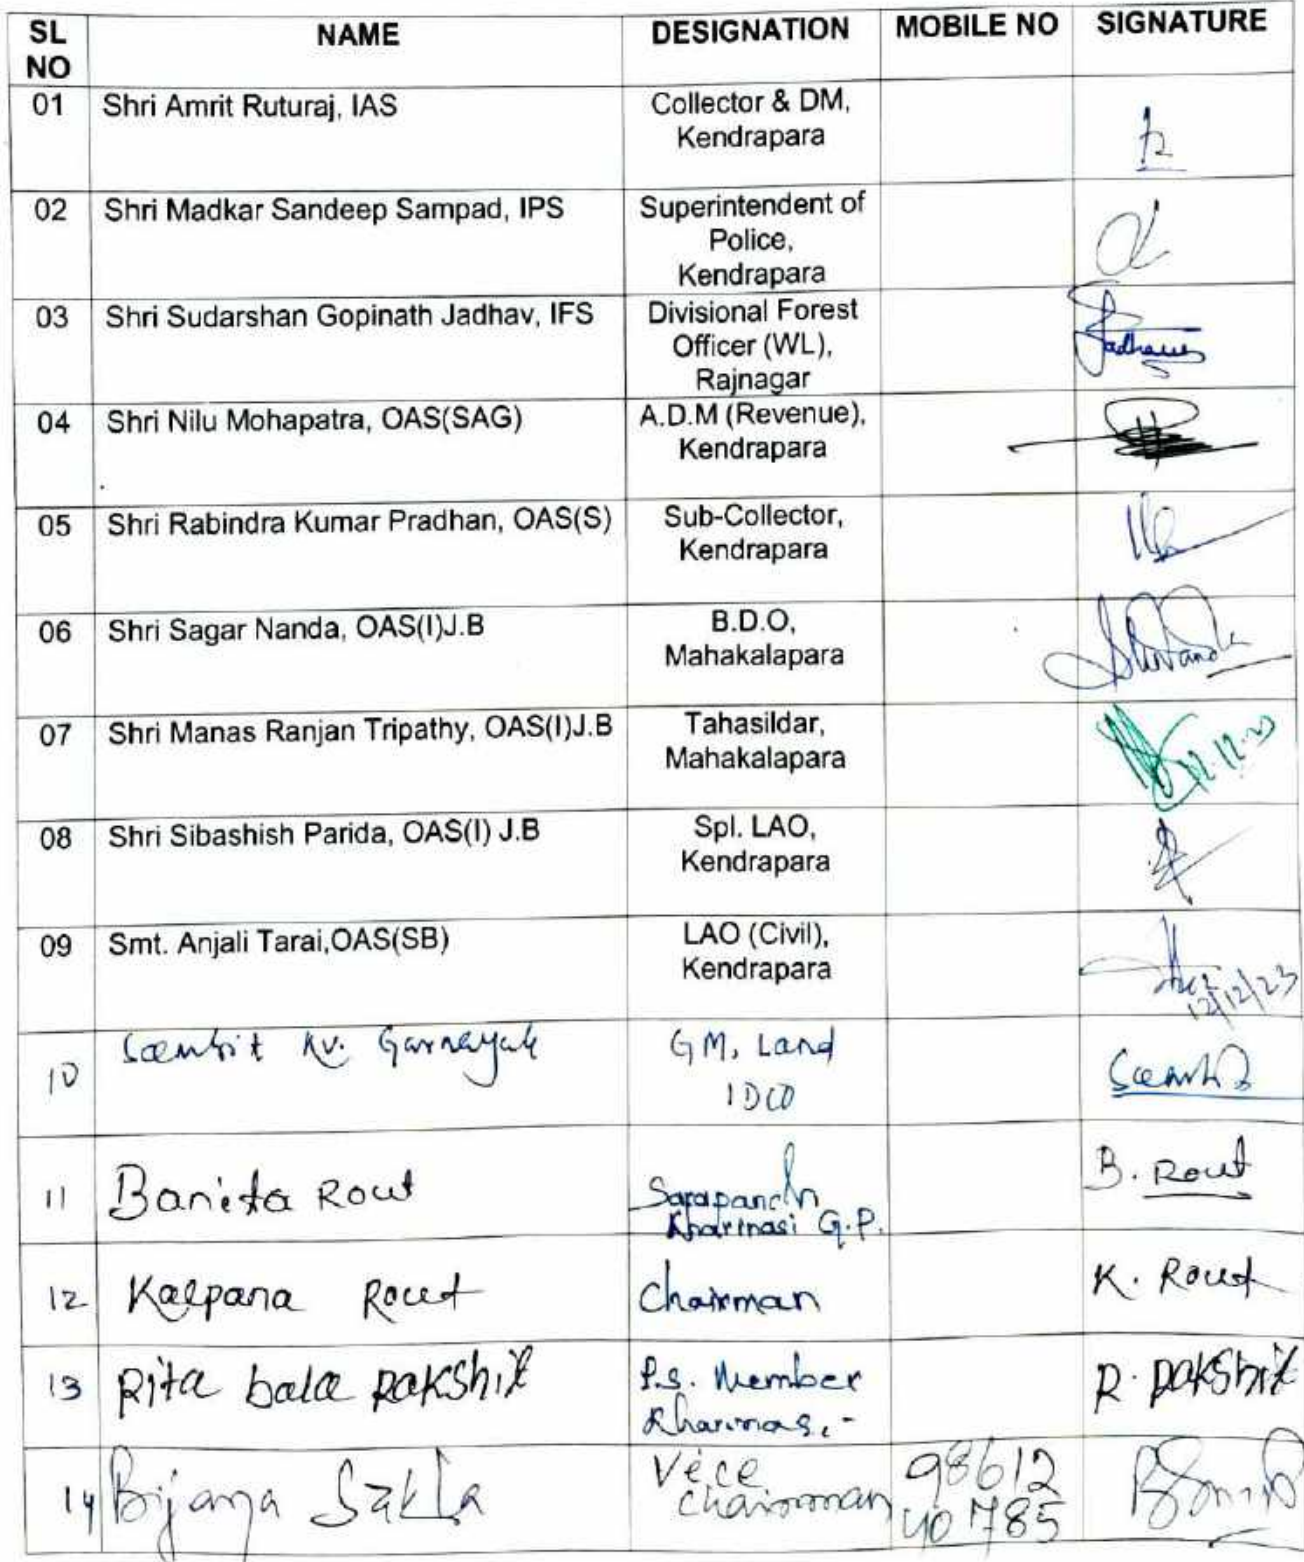 SL NO NAME DESIGNATION MOBILE NO SIGNATURE
01 Shri Amrit Ruturaj, IAS Collector & DM,
Kendrapara
02 Shri Madkar Sandeep Sampad, IPS Superintendent of
Police,
Kendrapara
03 Shri Sudarshan Gopinath Jadhav, IFS Divisional Forest
Officer (WL),
Rajnagar
04 Shri Nilu Mohapatra, OAS(SAG) A.D.M (Revenue),
Kendrapara
05 Shri Rabindra Kumar Pradhan, OAS(S) Sub-Collector,
Kendrapara
06 Shri Sagar Nanda, OAS(I)J.B B.D.O,
Mahakalapara
07 Shri Manas Ranjan Tripathy, OAS(I)J.B Tahasildar,
Mahakalapara
12.12.23
08 Shri Sibashish Parida, OAS(I) J.B Spl. LAO,
Kendrapara
09 Smt. Anjali Tarai,OAS(SB) LAO (Civil),
Kendrapara
12/12/23
10 Sambit Kr. Garnayak GM, Land
IDCO
11 Banita Rout Sarapanch B. Rout
Kharinasi G.P.
12 Kalpana Rout Chairman K. Rout
13 Rita bala Rakshit P.S. Member R. Rakshit
14 Bijaya Vice 98612
chairman 40785